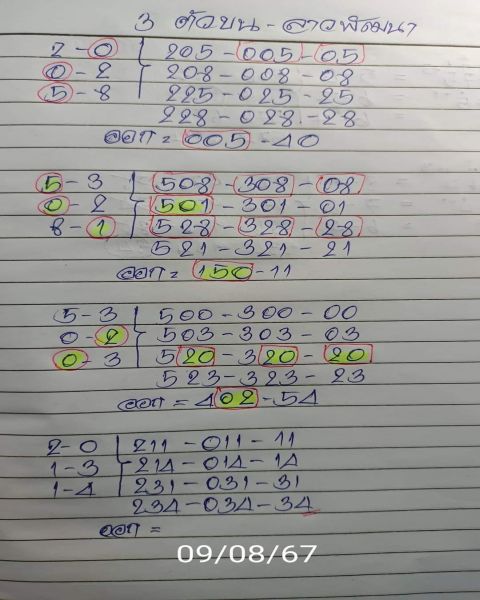 3 ตัวบน - ลาวพัฒนา
2-0 205-005-05
0-2 208-008-08
5-8 225-025-25
228-028-28
ออก = 005-40
5-3 508-308-08
0-2 501-301-01
8-1 528-328-28
521-321-21
ออก = 150-11
5-3 500-300-00
0-2 503-303-03
0-3 520-320-20
523-323-23
ออก = 402-54
2-0 211-011-11
1-3 214-014-14
1-4 231-031-31
234-034-34
ออก =
09/08/67